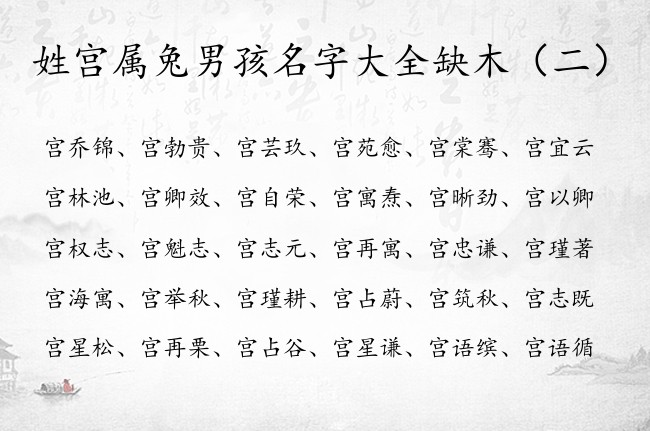 姓宫属兔男孩名字大全缺木（二）
宫乔锦、宫勃贵、宫芸玖、宫苑愈、宫棠骞、宫宜云
宫林池、宫卿效、宫自荣、宫寓焘、宫晰劲、宫以卿
宫权志、宫魁志、宫志元、宫再寓、宫忠谦、宫瑾著
宫海寓、宫举秋、宫瑾耕、宫占蔚、宫筑秋、宫志既
宫星松、宫再栗、宫占谷、宫星谦、宫语缤、宫语循